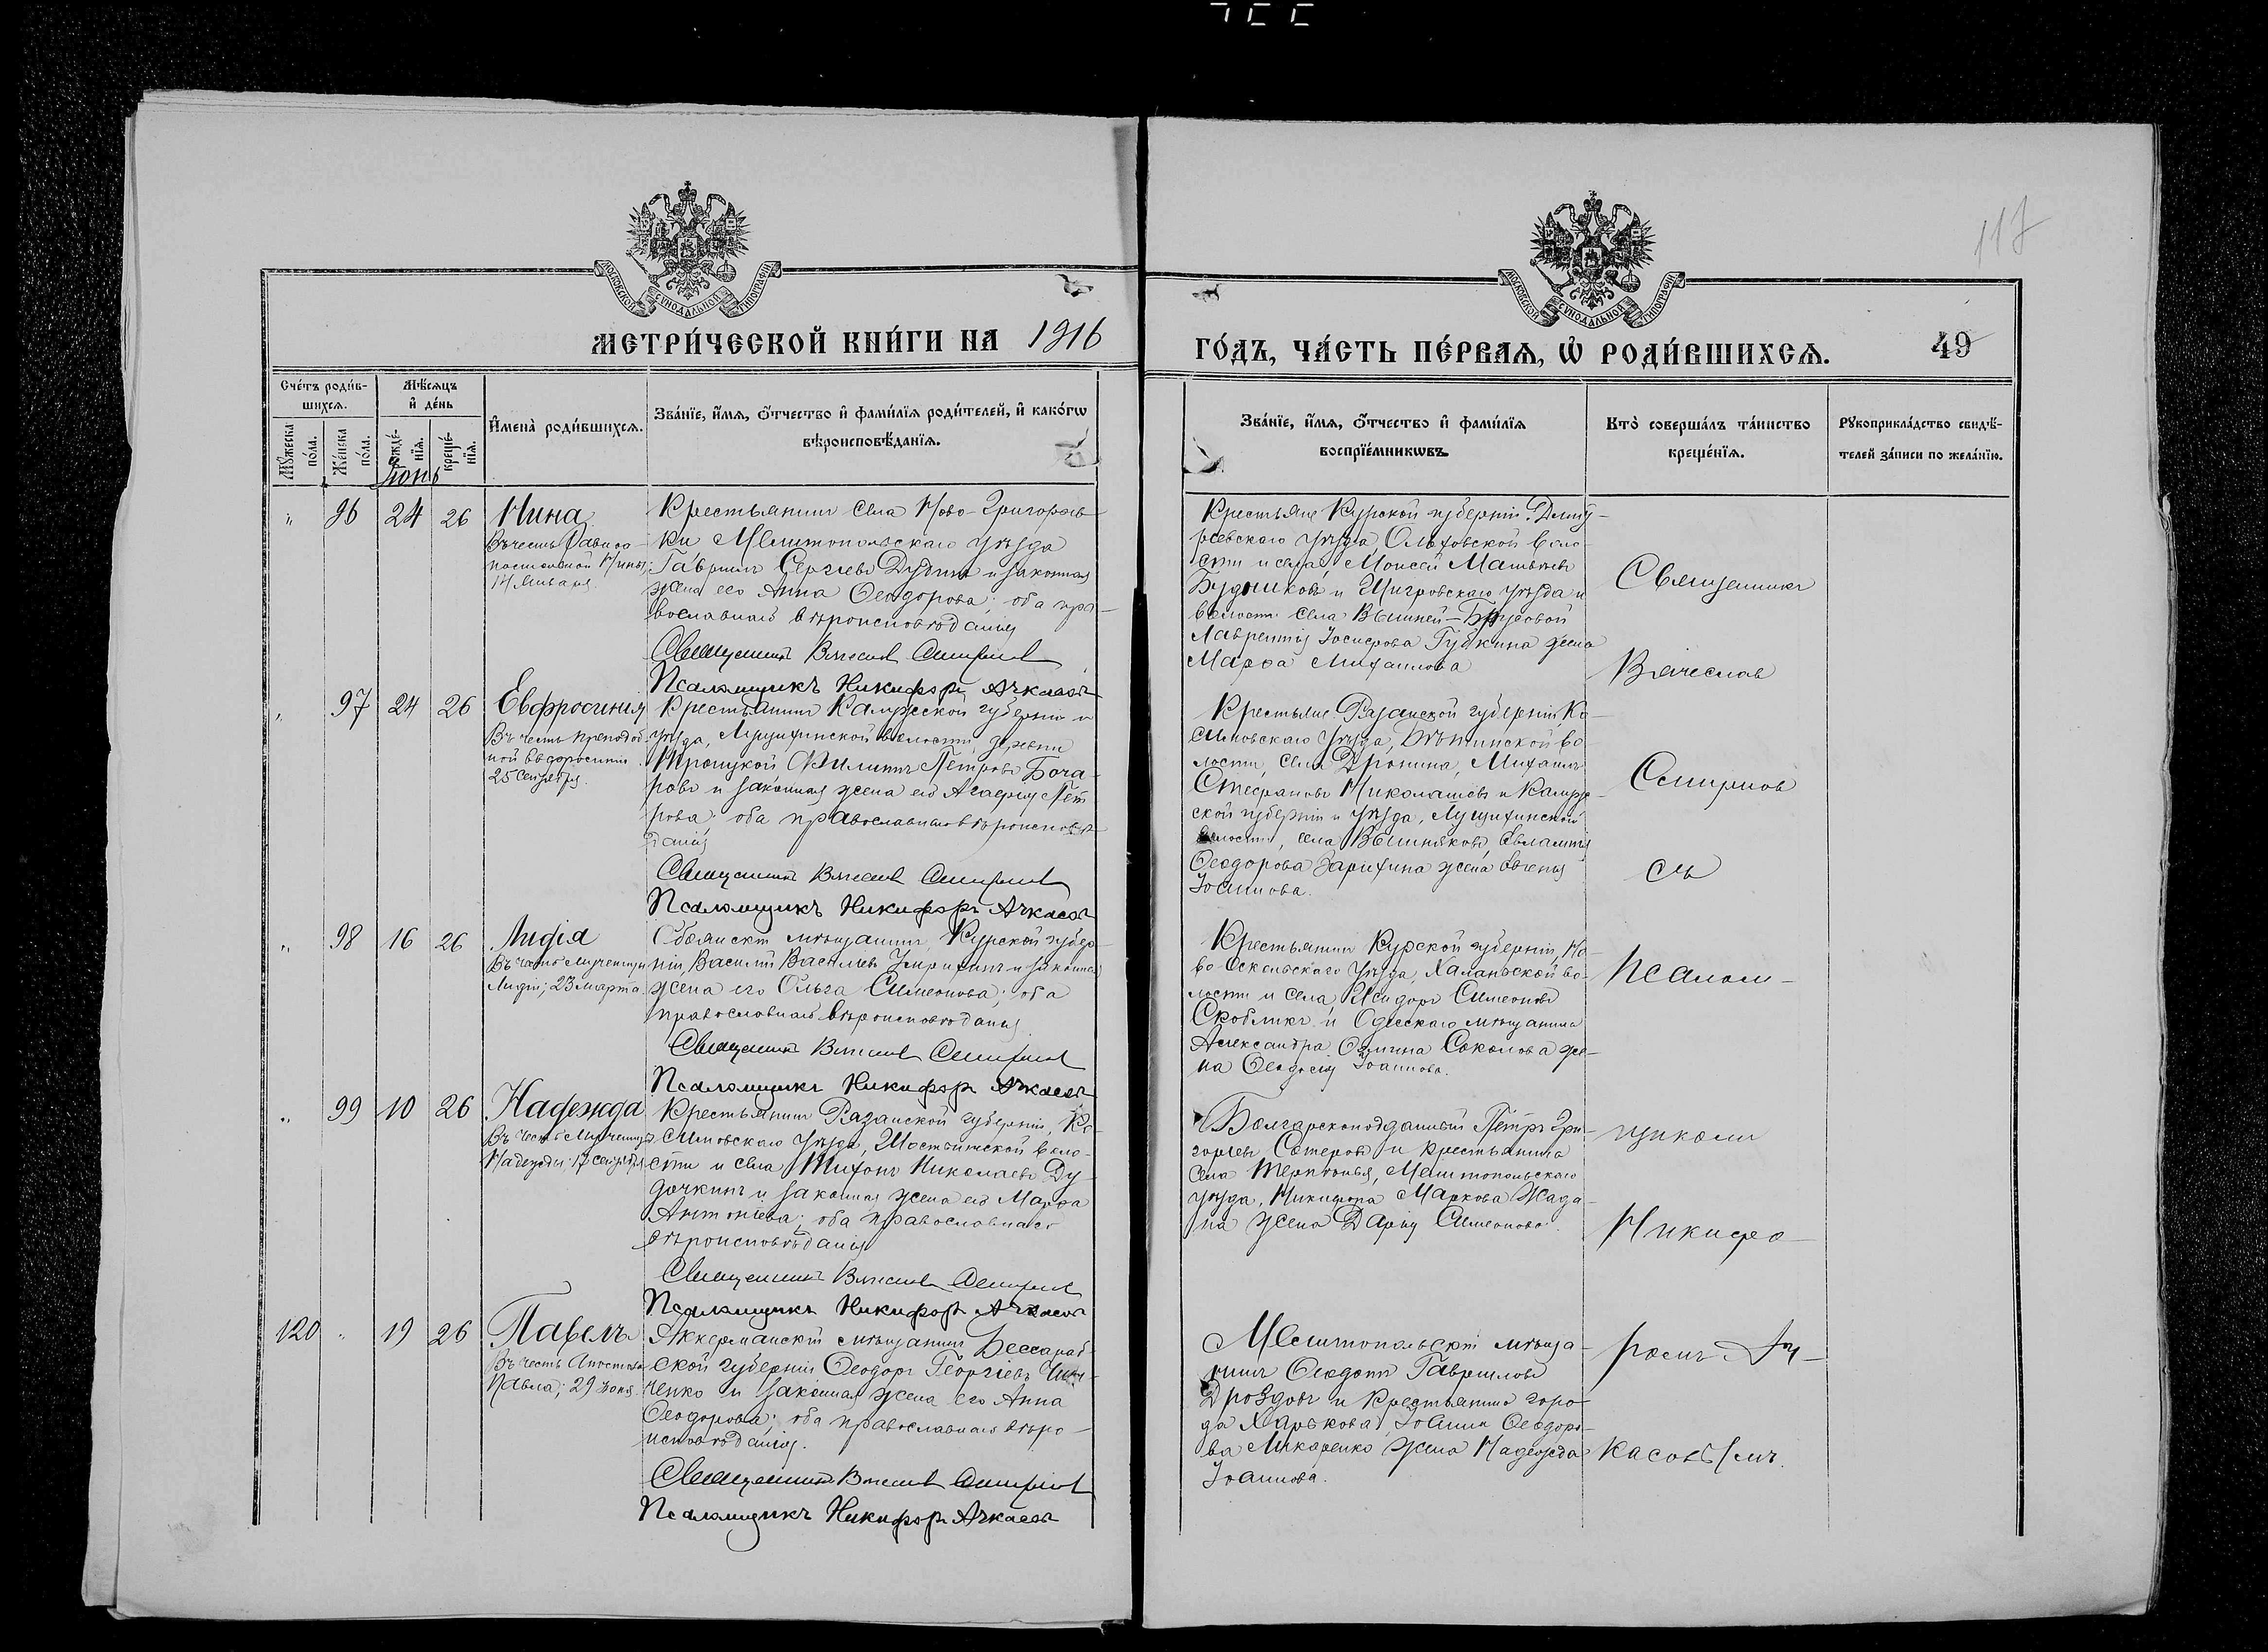 117
МЕТРИ́ЧЕСКОЙ КНИ́ГИ НА 1916
ГО́ДЪ, ЧА́СТЬ ПЕ́РВАЯ, Ѡ РОДИ́ВШИХСЯ. 49
МОСКОВСКОЙ СѴНОДАЛЬНОЙ ТИПОГРАФІИ
МОСКОВСКОЙ СѴНОДАЛЬНОЙ ТИПОГРАФІИ
Сче́тъ роди́в-
шихся.
Мѣ́сяцъ
и҆ де́нь
Мꙋ́жеска по́ла.
Же́нска по́ла.
рожде́-нїя.
креще́-нїя.
И҆мена̀ роди́вшихся.
Зва́нїе, и҆́мя, ѻ҆́тчество и҆ фами́лїя роди́телей, и҆ како́гѡ
вѣроисповѣ́данїя.
Зва́нїе, и҆́мя, ѻ҆́тчество и҆ фами́лїя
воспрїе́мникѡвъ.
Кто̀ соверша́лъ та́инство
креще́нїя.
Рꙋкоприкла́дство свидѣ́-
телей за́писи по жела́нїю.
Іюнь
96 24 26 Нина
Въ честь Равноа-
постольной Нины,
14 Января.
Крестьянинъ села Ново-Григоров-
ки Мелитопольскаго уѣзда
Гавріилъ Сергіевъ и законная
жена его Анна Ѳеодорова; оба пра-
вославнаго вѣроисповѣданія
Священникъ Вячеславъ Смирновъ
Псаломщикъ Никифоръ Ачкасовъ
Крестьяне Курской губерніи Дмит-
ріевскаго уѣзда, Ольховской воло-
сти и села, Моисей Матвѣевъ
Будниковъ и Щигровскаго уѣзда и
волости села Вышней-
Лаврентія Губкина жена
Марѳа Михаилова
Священникъ
Вячеславъ
97 24 26 Евфросинія
Въ честь преподоб-
ной Евфросиніи
25 Сентября.
Крестьянинъ Калужской губерніи и
уѣзда, волости, деревни
Троицкой Филиппъ Петровъ Боча-
ровъ и законная жена его Агафія Пет
рова; оба православнаго вѣроисповѣ-
данія
Священникъ Вячеславъ Смирновъ
Псаломщикъ Никифоръ Ачкасовъ
Крестьяне Рязанской губерніи, Ка-
симовскаго уѣзда, во-
лости, села Дронина, Михаилъ
Стефановъ Николашевъ и Калуж-
ской губерніи и уѣзда,
волости, села Вышнякова,
Ѳеодорова Зарихина жена Евгенія
Іоаннова.
Смирнов
съ
98 16 26 Лидія
Въ честь Мученицы
Лидіи; 23 Марта.
Обоянскій мѣщанинъ, Курской губер-
ніи, Василій Васильевъ и законная
жена его Ольга Симеонова; оба
православнаго вѣроисповѣданія.
Священникъ Вячеславъ Смирновъ
Псаломщикъ Никифоръ Ачкасовъ
Крестьянинъ Курской губерніи, Но-
во-Оскольскаго уѣзда, Халанской во-
лости и села Исидоръ Симеоновъ
Скобликъ и Одесскаго мѣщанина
Александра Соколова же-
на Ѳеодосія Іоаннова.
Псалом-
99 10 26 Надежда
Въ честь Мученицы
Надежды; 17 Сентября
Крестьянинъ Рязанской губерніи, Ка-
симовскаго уѣзда, воло-
сти и села Тихонъ Николаевъ Ду-
дочкинъ и законная жена его Марѳа
Антоніева; оба православнаго
вѣроисповѣданія
Священникъ Вячеславъ Смирновъ
Псаломщикъ Никифоръ Ачкасовъ
Болгарскоподданный Петръ Гри-
горіевъ и крестьянина
села Терпѣнья, Мелитопольскаго
уѣзда, Никифора Маркова Жада-
на жена Дарія Симеонова.
щикомъ
Никифо-
120 19 26 Павелъ
Въ честь Апостола
Павла; 29 Іюня.
Аккерманскій мѣщанинъ Бессараб-
ской губерніи Ѳеодоръ Георгіевъ
ченко и законная жена его Анна
Ѳеодорова; оба православнаго вѣро-
исповѣданія.
Священникъ Вячеславъ Смирновъ
Псаломщикъ Никифоръ Ачкасовъ
Мелитопольскій мѣща-
нинъ Ѳеодотъ Гавриловъ
Дроздовъ и крестьянина горо-
да Харькова, Іоанна Ѳеодоро-
ва Макаренко жена Надежда
Іоаннова.
ромъ Ач-
касовымъ.